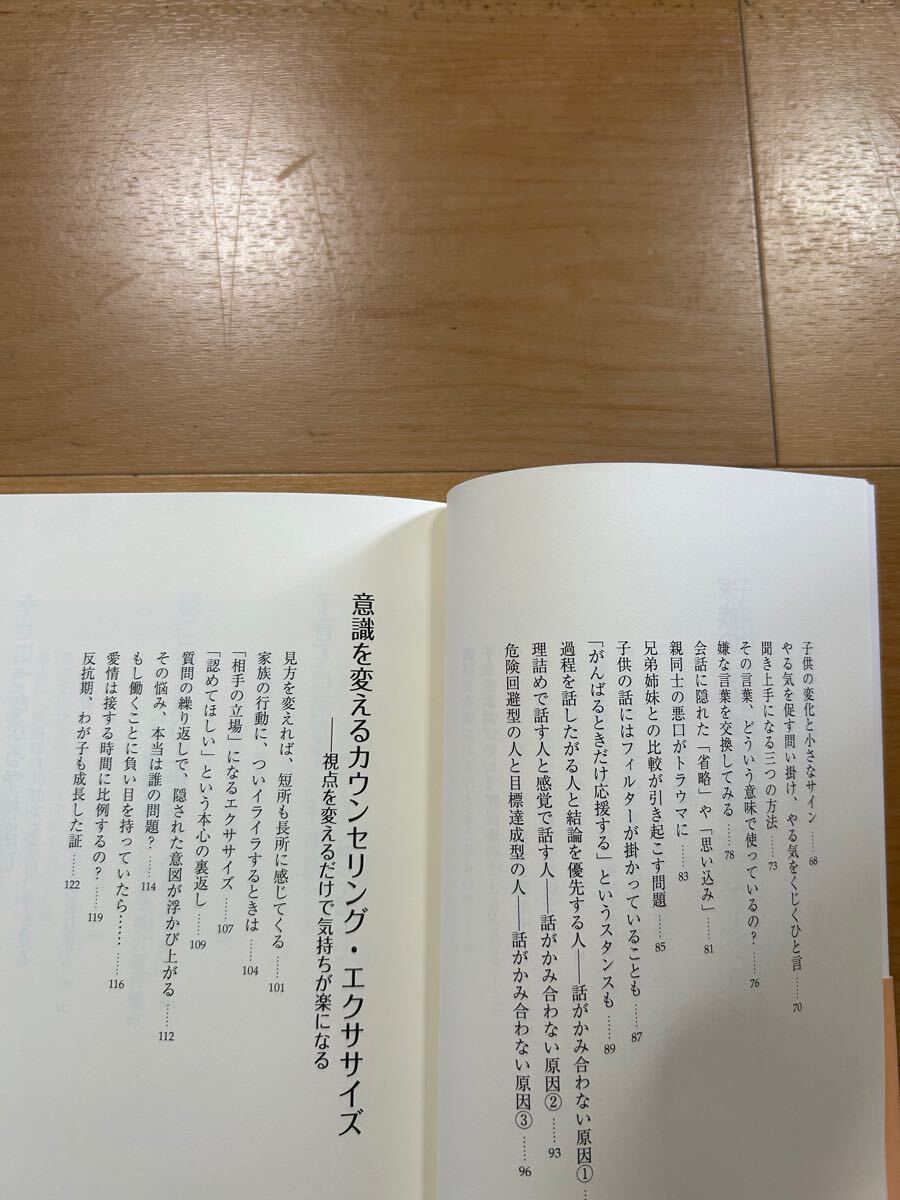 子供の変化と小さなサイン……68
やる気を促す問い掛け、やる気をくじくひと言……70
聞き上手になる三つの方法……73
その言葉、どういう意味で使っているの？……76
嫌な言葉を交換してみる……78
会話に隠れた「省略」や「思い込み」……81
親同士の悪口がトラウマに……83
兄弟姉妹との比較が引き起こす問題……85
子供の話にはフィルターが掛かっていることも……87
「がんばるときだけ応援する」というスタンスも……89
過程を話したがる人と結論を優先する人――話がかみ合わない原因①……
理詰めで話す人と感覚で話す人――話がかみ合わない原因②……93
危険回避型の人と目標達成型の人――話がかみ合わない原因③……96
意識を変えるカウンセリング・エクササイズ
――視点を変えるだけで気持ちが楽になる
見方を変えれば、短所も長所に感じてくる……101
家族の行動に、ついイライラするときは……104
「相手の立場」になるエクササイズ……107
「認めてほしい」という本心の裏返し……109
質問の繰り返しで、隠された意図が浮かび上がる……112
その悩み、本当は誰の問題？……114
もし働くことに負い目を持っていたら…………116
愛情は接する時間に比例するの？……119
反抗期、わが子も成長した証……122